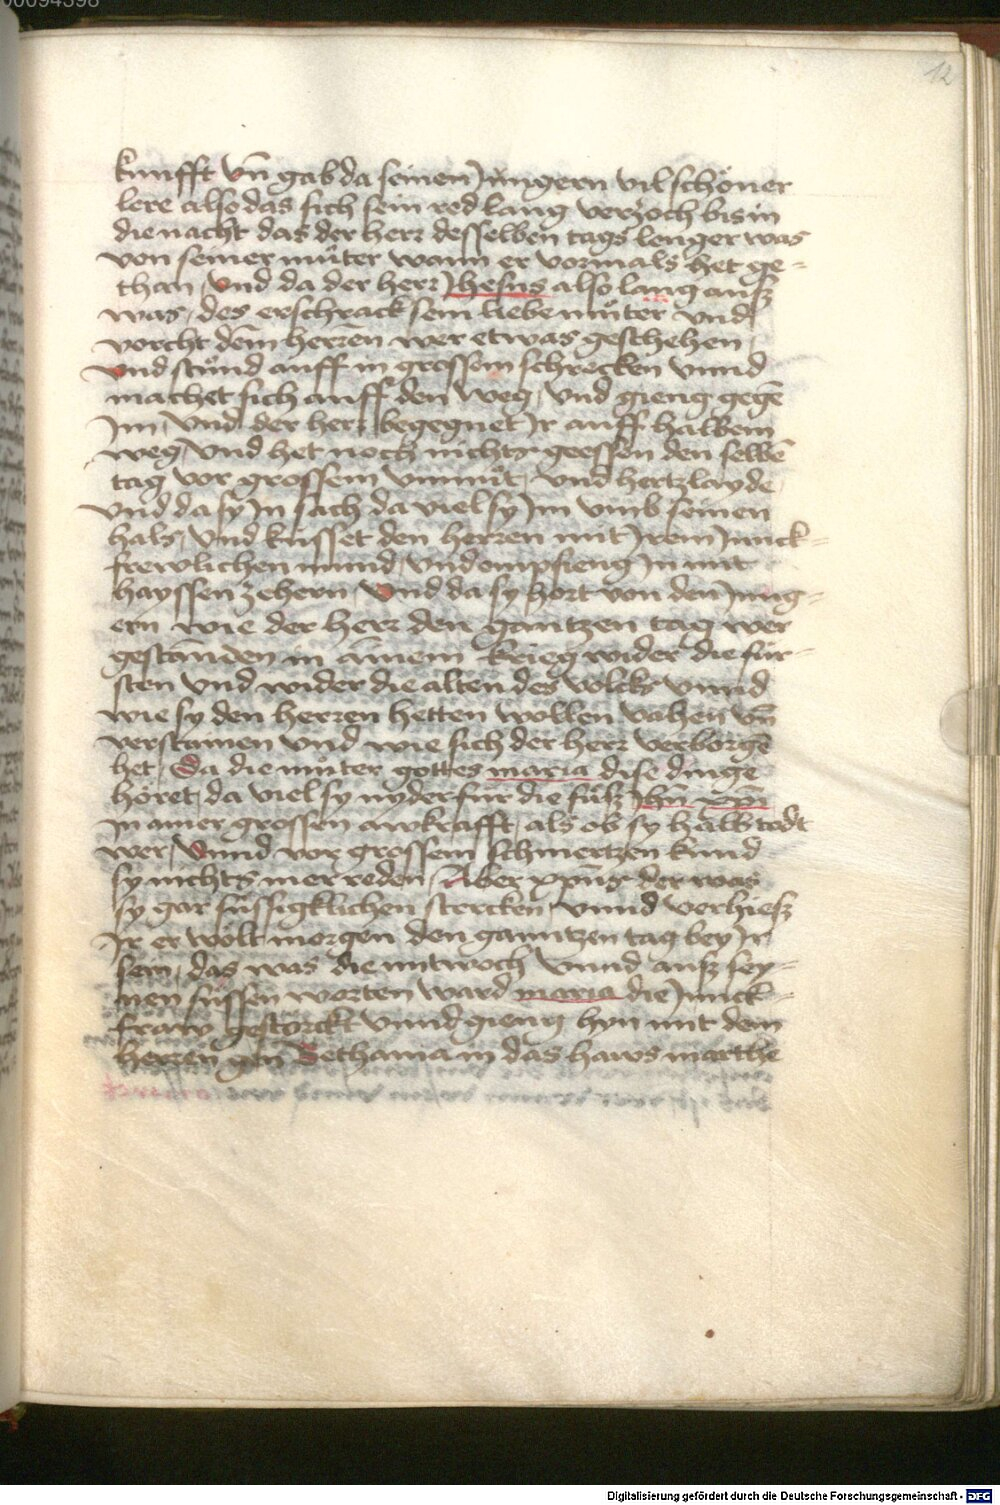 00094398
12
kunfft vn̄ gab da seinen Jungern vil schöner
lere also das sich sein red lang verzoch bis in
die nacht das der herr desselben tags lenger was
von seiner můter wann er vormals het ge-
than / Und da der herr Jhesus also lang auß
was / des erschrack sein liebe můter und
vorcht dem herren wer etwas geschehen /
und stůnd auff in grossem schrecken unnd
machet sich auff den weg / und gieng gegē
Im / Und der herr begegnet Ir auff halbem
weg / Und het noch nichtz geessen den selbē
tag vor grossem unmůt / und hertzlayde /
Und da sy In sach da viel sy Im umb seinen
hals / Und küsset den herren mit Irem Junck-
frewlichen mund / und empfieng In mit
hayssen zehern / Und da sy hort von den Jung-
ern wie der herr den gantzen tag wer
gestanden in ainem krieg wider die für-
sten und wider die alten des volcks unnd
wie sy den herren hetten wollen vahen vn̄
verstainen und wie sich der herr verborgē
het / Da die můter gottes maria dise dinge
höret / da viel sy nyder für die füß Jhū xp̄i
in ainer grossen amkrafft / als ob sy halb todt
wer / Unnd vor grossem schmertzen kund
sy nichts mer reden / Aber xp̄us der was
sy gar süssigklichen stercken / unnd verhieß
Ir er wölt morgen den ganntzen tag bey Ir
sein / das was die mitwoch unnd auß sey-
nen süssen worten ward maria die Junck-
fraw gestörckt unnd gieng hyn mit dem
herren gen Bethania in das haws marthe
Digitalisierung gefördert durch die Deutsche Forschungsgemeinschaft - DFG